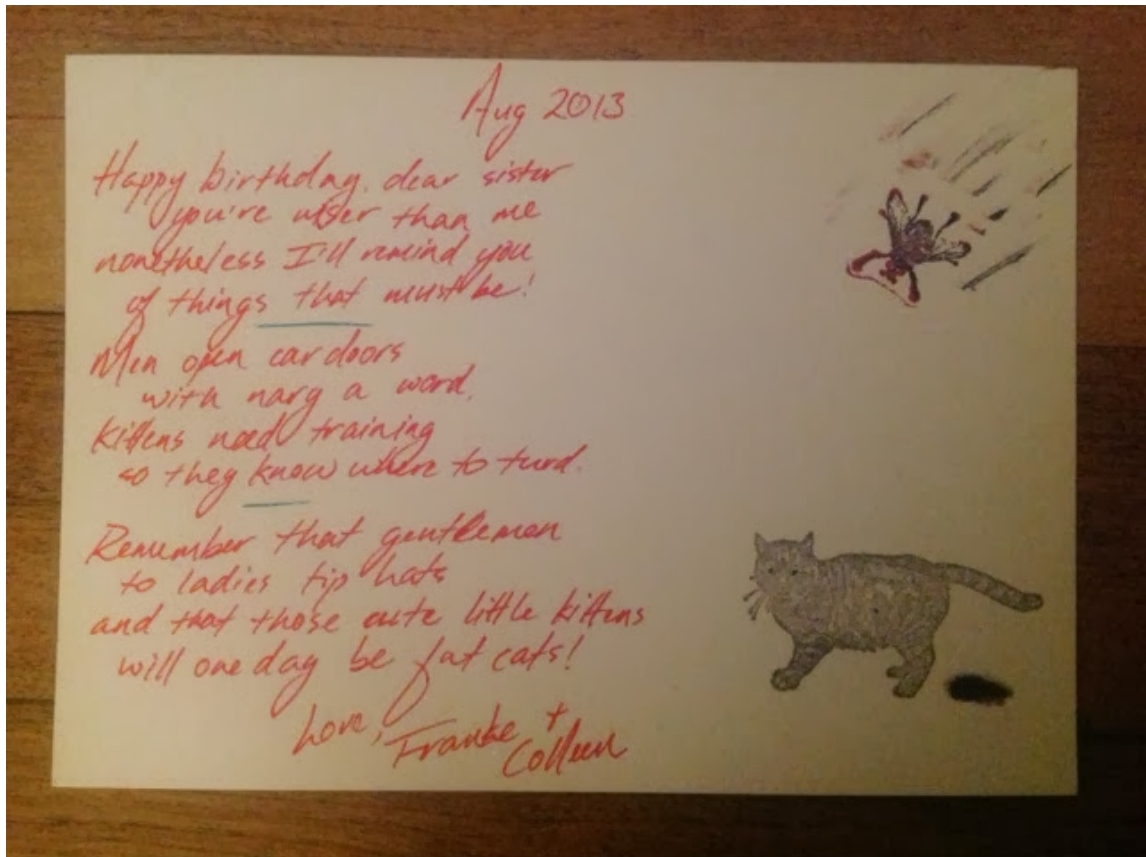 Aug 2013
Happy birthday, dear sister
you're wiser than me
nonetheless I'll remind you
of things that must be!
Men open car doors
with nary a word.
Kittens need training
so they know where to turd.
Remember that gentlemen
to ladies tip hats
and that those cute little kittens
will one day be fat cats!
Love, Franke +
Colleen